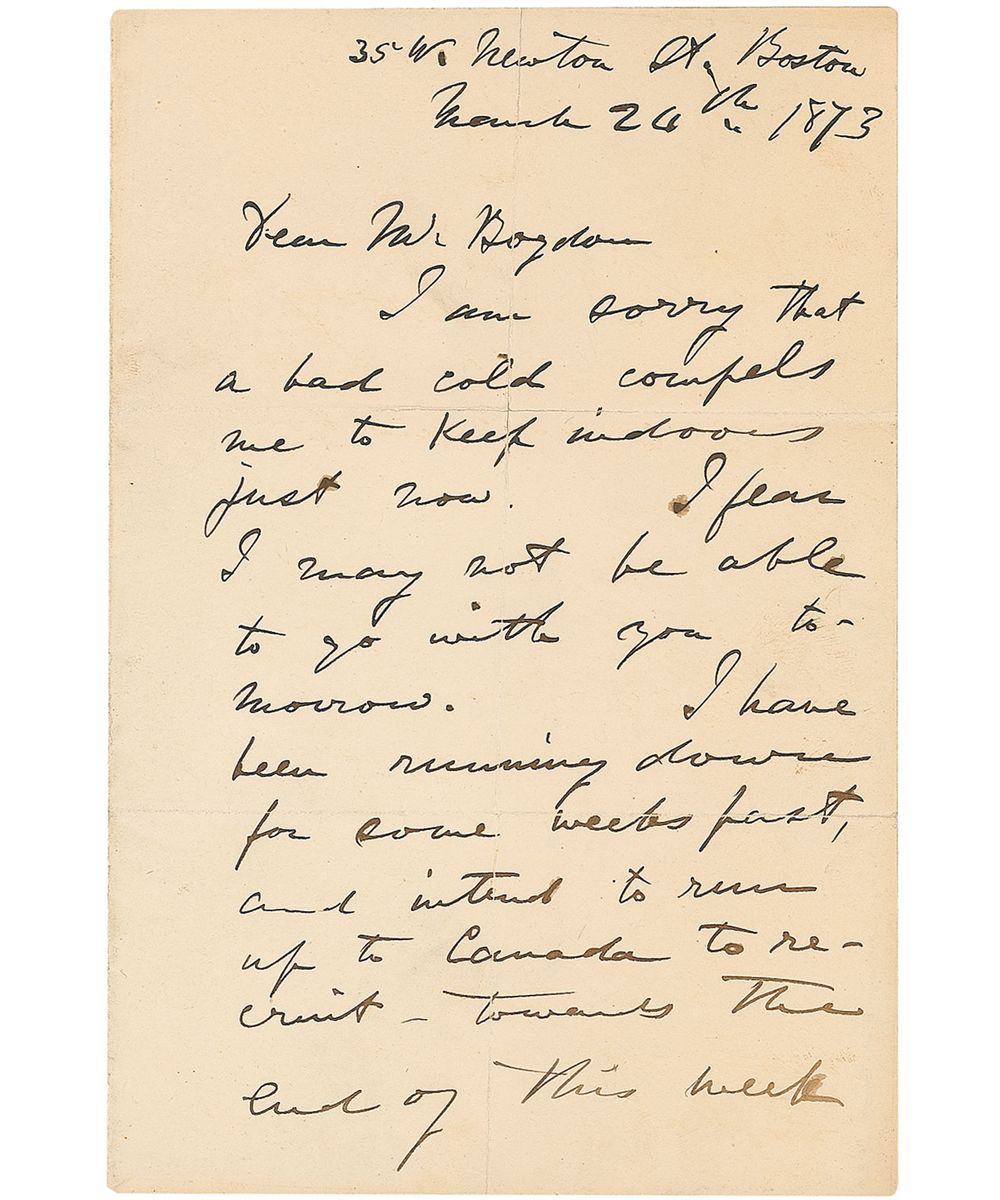 35 W. Newton St. Boston
March 24th 1873
Dear Mr. Bogdon
I am sorry that
a bad cold compels
me to keep indoors
just now. I fear
I may not be able
to go with you to-
morrow. I have
been running down
for some weeks past,
and intend to run
up to Canada to re-
cruit – towards the
end of this week